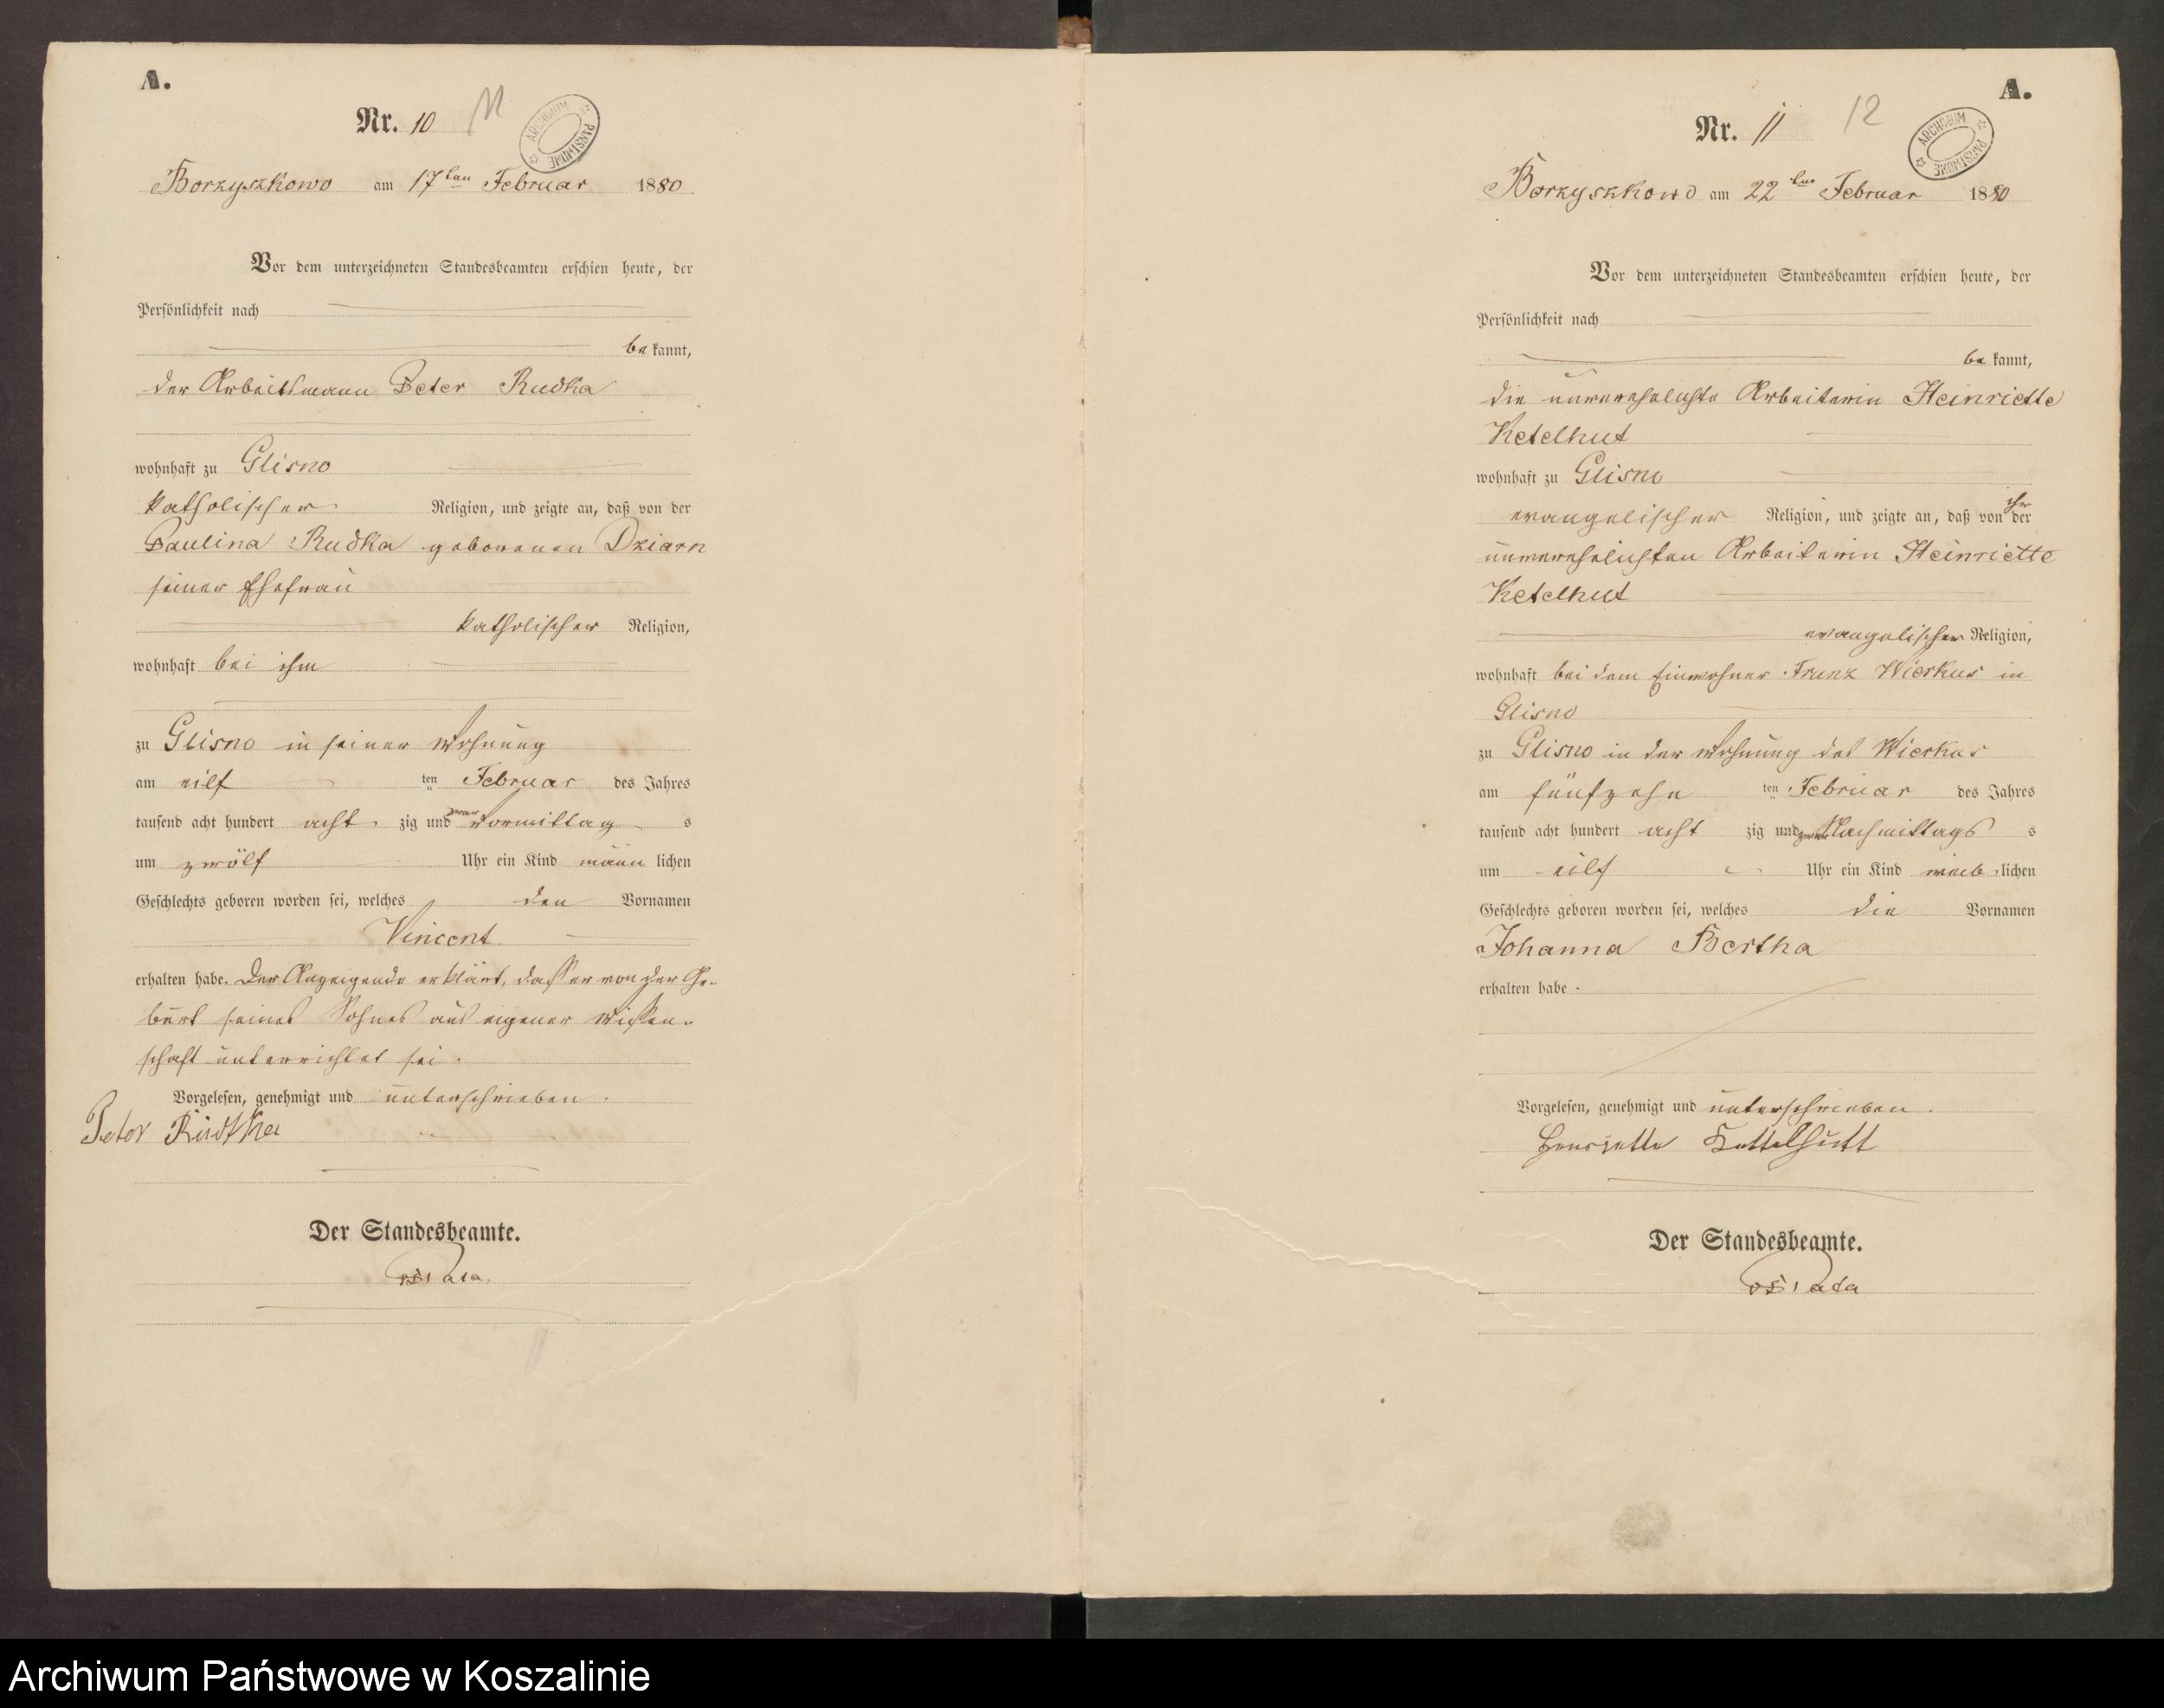 A.
Nr. 10 11
ARCHIWUM PAŃSTWOWE
Borzyszkowo am 17ten Februar 1880
Vor dem unterzeichneten Standesbeamten erschien heute, der
Persönlichkeit nach
bekannt,
der Arbeitsmann Peter Rudka
wohnhaft zu Glisno
katholischer Religion, und zeigte an, daß von der
Paulina Rudka geborenen Dziarn
seiner Ehefrau
katholischer Religion,
wohnhaft bei ihm
zu Glisno in seiner Wohnung
am eilf ten Februar des Jahres
tausend acht hundert acht zig und zwar Vormittag s
um zwölf Uhr ein Kind männ lichen
Geschlechts geboren worden sei, welches den Vornamen
Vincent
erhalten habe. Der Anzeigende erklärt, dass er von der Ge-
burt seines Sohnes aus eigener Wissen-
schaft unterrichtet sei.
Vorgelesen, genehmigt und unterschrieben.
Peter Rudtka
Der Standesbeamte.
A.
Nr. 11 12
ARCHIWUM PAŃSTWOWE
Borzyszkowo am 22ten Februar 1880
Vor dem unterzeichneten Standesbeamten erschien heute, der
Persönlichkeit nach
bekannt,
die unverehelichte Arbeiterin Heinriette
Ketelhut
wohnhaft zu Glisno
evangelischer Religion, und zeigte an, daß von ihr der
unverehelichten Arbeiterin Heinriette
Ketelhut
evangelischer Religion,
wohnhaft bei dem Einwohner Franz Wierkus in
Glisno
zu Glisno in der Wohnung des Wierkus
am fünfzehn ten Februar des Jahres
tausend acht hundert acht zig und zwar Nachmittags s
um eilf Uhr ein Kind weib lichen
Geschlechts geboren worden sei, welches die Vornamen
Johanna Bertha
erhalten habe.
Vorgelesen, genehmigt und unterschrieben.
Henriette Kettelhutt
Der Standesbeamte.
Archiwum Państwowe w Koszalinie